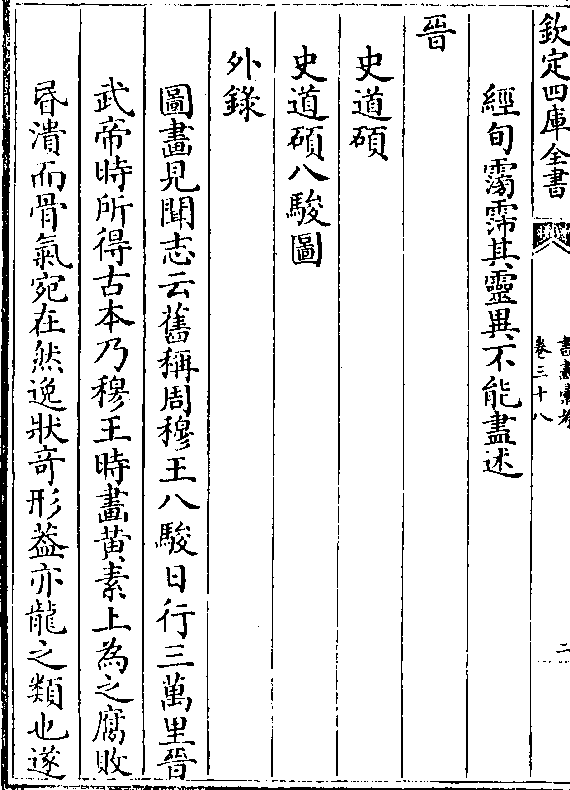 欽定四庫全書
書畫彙考
卷三十八
二
經旬霶霈其靈異不能盡述
晉
史道碩
史道碩八駿圖
外錄
圖畫見聞志云舊稱周穆王八駿日行三萬里晉
武帝時所得古本乃穆王時畫黃素上為之腐敗
昬潰而骨氣宛在然逸狀竒形葢亦龍之類也遂